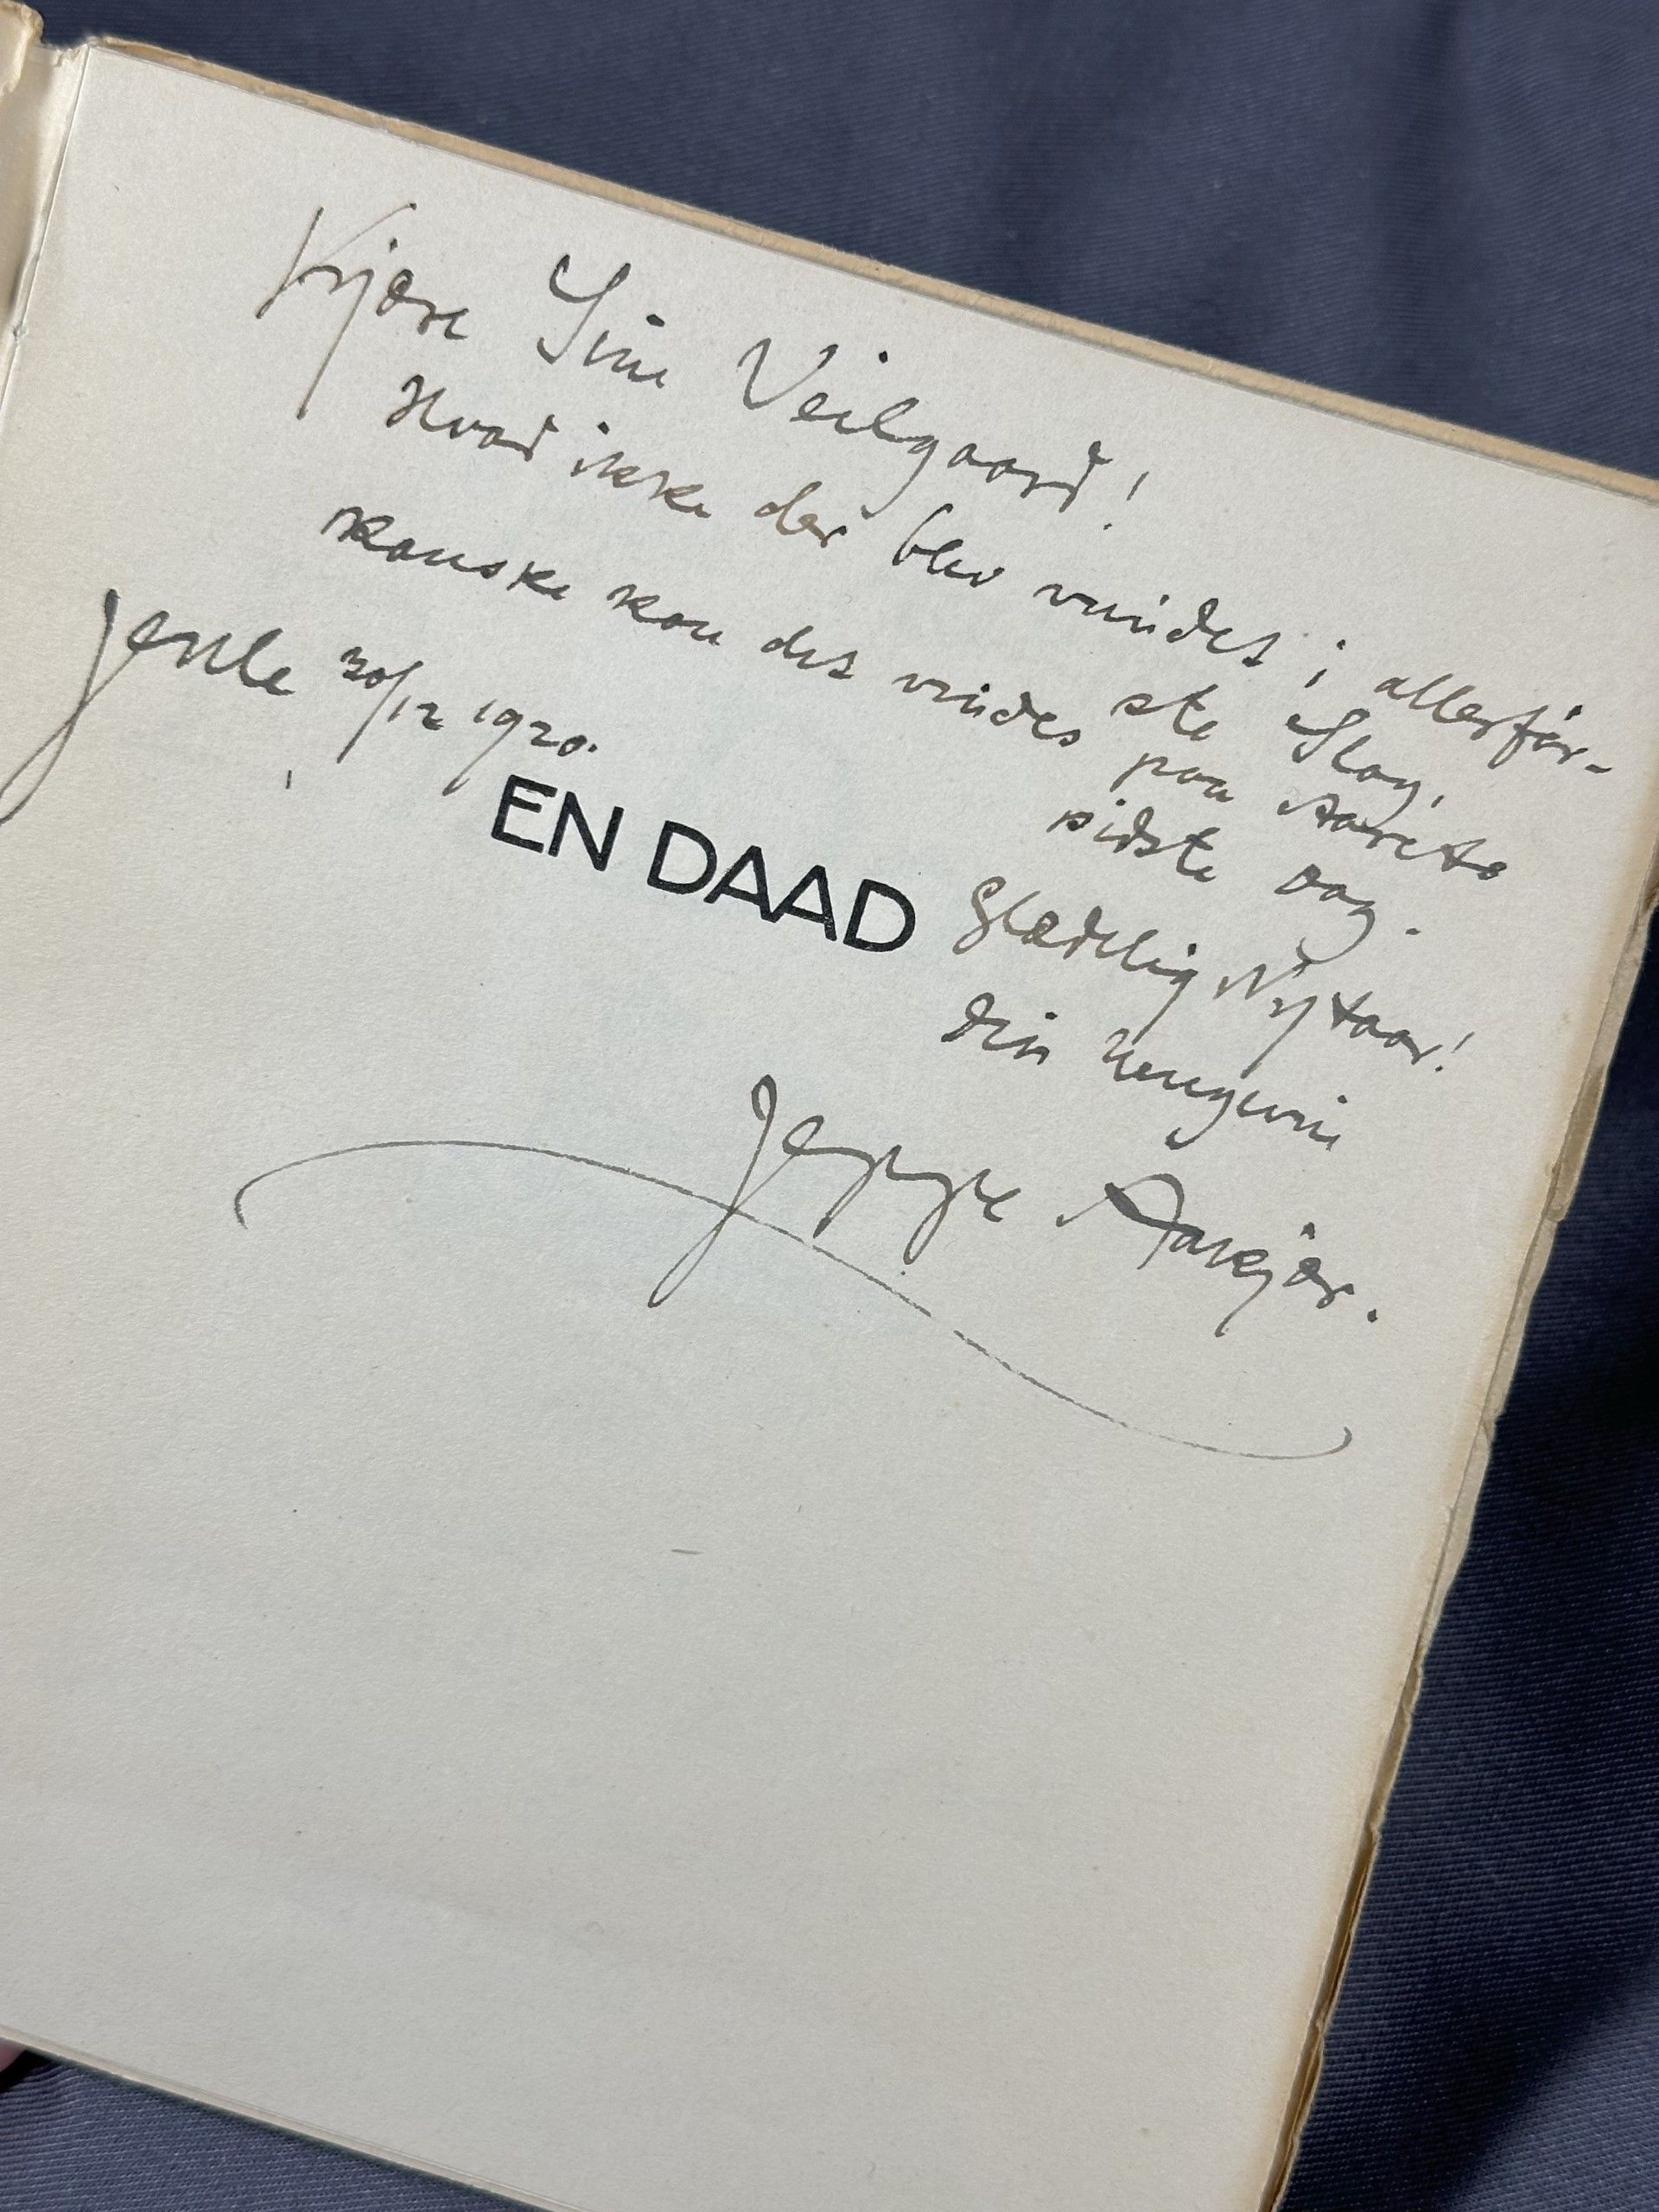 Kjære Sine Veilgaard!
Hvad ikke der blev vundet i allerfør-
ste Slag,
kanske kan det vindes paa Aarets
sidste Dag.
Jenle 30/12 1920.
EN DAAD
Glædelig Nytaar!
Din hengivne
Jeppe Aakjær.